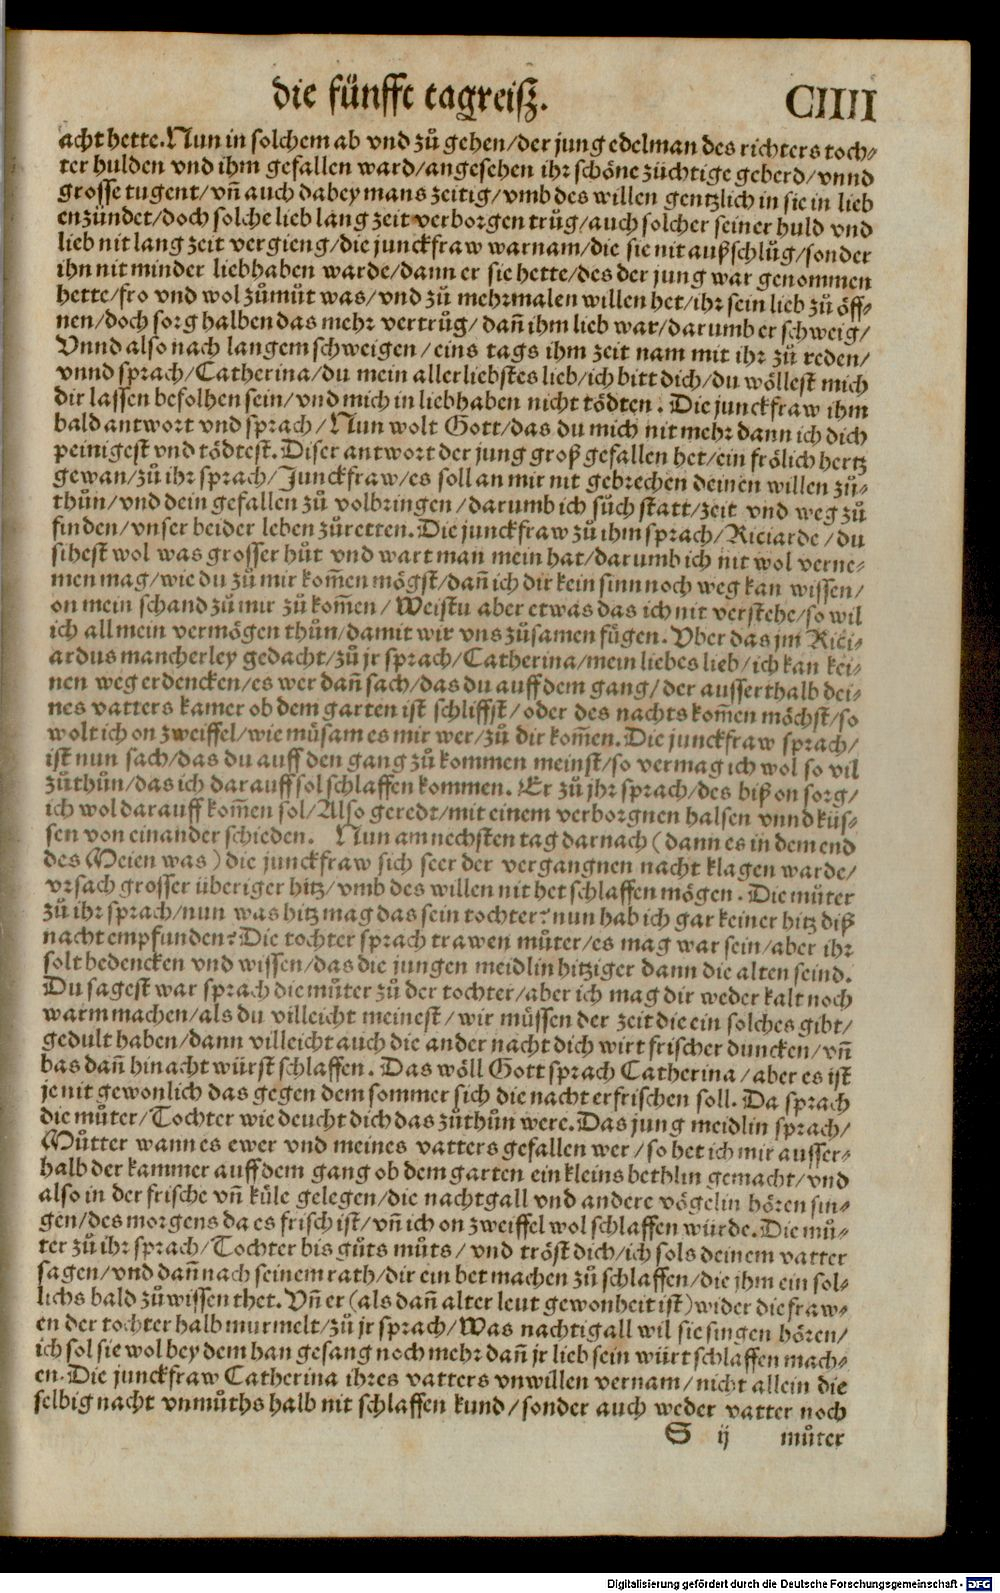 die fünfft tagreisz.
CIIII
acht hette. Nun in solchem ab vnd zů gehen/der jung edelman des richters toch-
ter hulden vnd ihm gefallen ward/angesehen ihr schöne züchtige geberd/vnnd
grosse tugent/vñ auch dabey mans zeitig/vmb des willen gentzlich in sie in lieb
enzündet/doch solche lieb lang zeit verborgen trůg/auch solcher seiner huld vnd
lieb nit lang zeit vergieng/die junckfraw warnam/die sie nit außschlůg/sonder
ihn nit minder liebhaben warde/dann er sie hette/des der jung war genommen
hette/fro vnd wol zůmůt was/vnd zů mehrmalen willen het/ihr sein lieb zů öff-
nen/doch sorg halben das mehr vertrůg/dañ ihm lieb war/darumb er schweig/
Vnnd also nach langem schweigen/eins tags ihm zeit nam mit ihr zů reden/
vnnd sprach/Catherina/du mein allerliebstes lieb/ich bitt dich/du wöllest mich
dir lassen befolhen sein/vnd mich in liebhaben nicht tödten. Die junckfraw ihm
bald antwort vnd sprach/Nun wolt Gott/das du mich nit mehr dann ich dich
peinigest vnd tödtest. Diser antwort der jung groß gefallen het/ein frölich hertz
gewan/zů ihr sprach/Junckfraw/es soll an mir nit gebrechen deinen willen zů-
thůn/vnd dein gefallen zů volbringen/darumb ich sůch statt/zeit vnd weg zů
finden/vnser beider leben zůretten. Die junckfraw zů ihm sprach/Riciarde/du
sihest wol was grosser hůt vnd wart man mein hat/darumb ich nit wol verne-
men mag/wie du zů mir kom̃en mögst/dañ ich dir kein sinn noch weg kan wissen/
on mein schand zů mir zů kom̃en/Weistu aber etwas das ich nit verstehe/so wil
ich all mein vermögen thůn/damit wir vns zůsamen fügen. Vber das jm Rici-
ardus mancherley gedacht/zů jr sprach/Catherina/mein liebes lieb/ich kan kei-
nen weg erdencken/es wer dañ sach/das du auff dem gang/der ausserthalb dei-
nes vatters kamer ob dem garten ist schliffst/oder des nachts kom̃en möchst/so
wolt ich on zweiffel/wie můsam es mir wer/zů dir kom̃en. Die junckfraw sprach/
ist nun sach/das du auff den gang zů kommen meinst/so vermag ich wol so vil
zůthůn/das ich darauff sol schlaffen kommen. Er zů jhr sprach/des biß on sorg/
ich wol darauff kom̃en sol/Also geredt/mit einem verborgnen halsen vnnd küs-
sen von einander schieden. Nun am nechsten tag darnach (dann es in dem end
des Meien was) die junckfraw sich seer der vergangnen nacht klagen warde/
vrsach grosser überiger hitz/vmb des willen nit het schlaffen mögen. Die můter
zů ihr sprach/nun was hitz mag das sein tochter? nun hab ich gar keiner hitz diß
nacht empfunden? Die tochter sprach trawen můter/es mag war sein/aber ihr
solt bedencken vnd wissen/das die jungen meidlin hitziger dann die alten seind.
Du sagest war sprach die můter zů der tochter/aber ich mag dir weder kalt noch
warm machen/als du villeicht meinest/wir müssen der zeit die ein solches gibt/
gedult haben/dann villeicht auch die ander nacht dich wirt frischer duncken/vñ
bas dañ hinacht würst schlaffen. Das wöll Gott sprach Catherina/aber es ist
je nit gewonlich das gegen dem sommer sich die nacht erfrischen soll. Da sprach
die můter/Tochter wie deucht dich das zůthůn were. Das jung meidlin sprach/
Můtter wann es ewer vnd meines vatters gefallen wer/so het ich mir ausser-
halb der kammer auff dem gang ob dem garten ein kleins bethlin gemacht/vnd
also in der frische vñ küle gelegen/die nachtgall vnd andere vögelin hören sin-
gen/des morgens da es frisch ist/vñ ich on zweiffel wol schlaffen würde. Die mů-
ter zů ihr sprach/Tochter bis gůts můts/vnd tröst dich/ich sols deinem vatter
sagen/vnd dañ nach seinem rath/dir ein bet machen zů schlaffen/die jhm ein sol-
lichs bald zůwissen thet. Vñ er (als dañ alter leut gewonheit ist) wider die fraw-
en der tochter halb murmelt/zů jr sprach/Was nachtigall wil sie singen hören/
ich sol sie wol bey dem han gesang noch mehr dañ jr lieb sein würt schlaffen mach-
en. Die junckfraw Catherina ihres vatters vnwillen vernam/nicht allein die
selbig nacht vnmůths halb nit schlaffen kund/sonder auch weder vatter noch
S ij můter
Digitalisierung gefördert durch die Deutsche Forschungsgemeinschaft - DFG